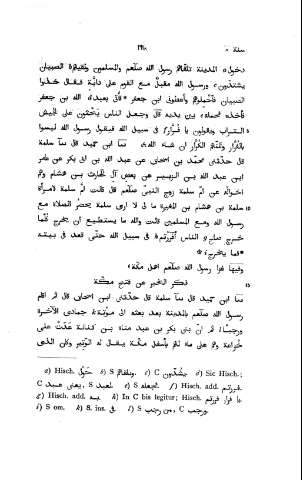 سنة ٨ ١٦١٨
دخول المدينة تلقّاهم رسول الله صلّعم والمسلمون ولقيهم الصبيان
يشتدّون ورسول الله مقبل مع القوم على دابّة فقال خذوا
الصبيان فاحملوهم وأعطوني ابن جعفر فأتى بعبد الله بن جعفر
فأخذه فحمله بين يديه قال وجعل الناس يحثون على الجيش
التراب ويقولون يا فرّار في سبيل الله فيقول رسول الله ليسوا
بالفرّار ولكنّهم الكرّار ان شاء الله، سا ابن حميد قال سا سلمة
قال حدّثني محمّد بن اسحاق عن عبد الله بن ابى بكر عن عامر
ابن عبد الله بن الزبير عن بعض آل الحارث بن هشام وهم
اخواله عن امّ سلمة زوج النبيّ صلّعم قال قالت امّ سلمة لامرأة
سلمة بن هشام بن المغيرة ما لى لا ارى سلمة يحضر الصلاة مع
رسول الله ومع المسلمين قالت والله ما يستطيع ان يخرج كلّما
خرج صاح الناس أفررتم في سبيل الله حتّى قعد في بيته
فما يخرج،
وفيها غزا رسول الله صلّعم اهل مكّة،
ذكر الخبر عن فتح مكّة ١٥
سا ابن حميد قال سا سلمة قال حدّثنى ابن اسحاق قال ثم اقام
رسول الله صلّعم بالمدينة بعد بعثه الى مؤتة جمادى الآخرة
ورجبا ثم انّ بنى بكر بن عبد مناة بن كنانة عدت على
خزاعة وهم على ماء لهم بأسفل مكّة يقال له الوتير وكان الذى
a) Hisch. حول. b) S ولقوهم. c) C يشدّون. d) Sic Hisch.;
C يعنى عبد, S لعبد. e) S فجعله. f) Hisch. add. فررتم.
g) Hisch. add. به. h) In C bis legitur; Hisch. يا فرار فررتم.
i) S om. k) S. ins. في. l) S من رجب, C ورجب.